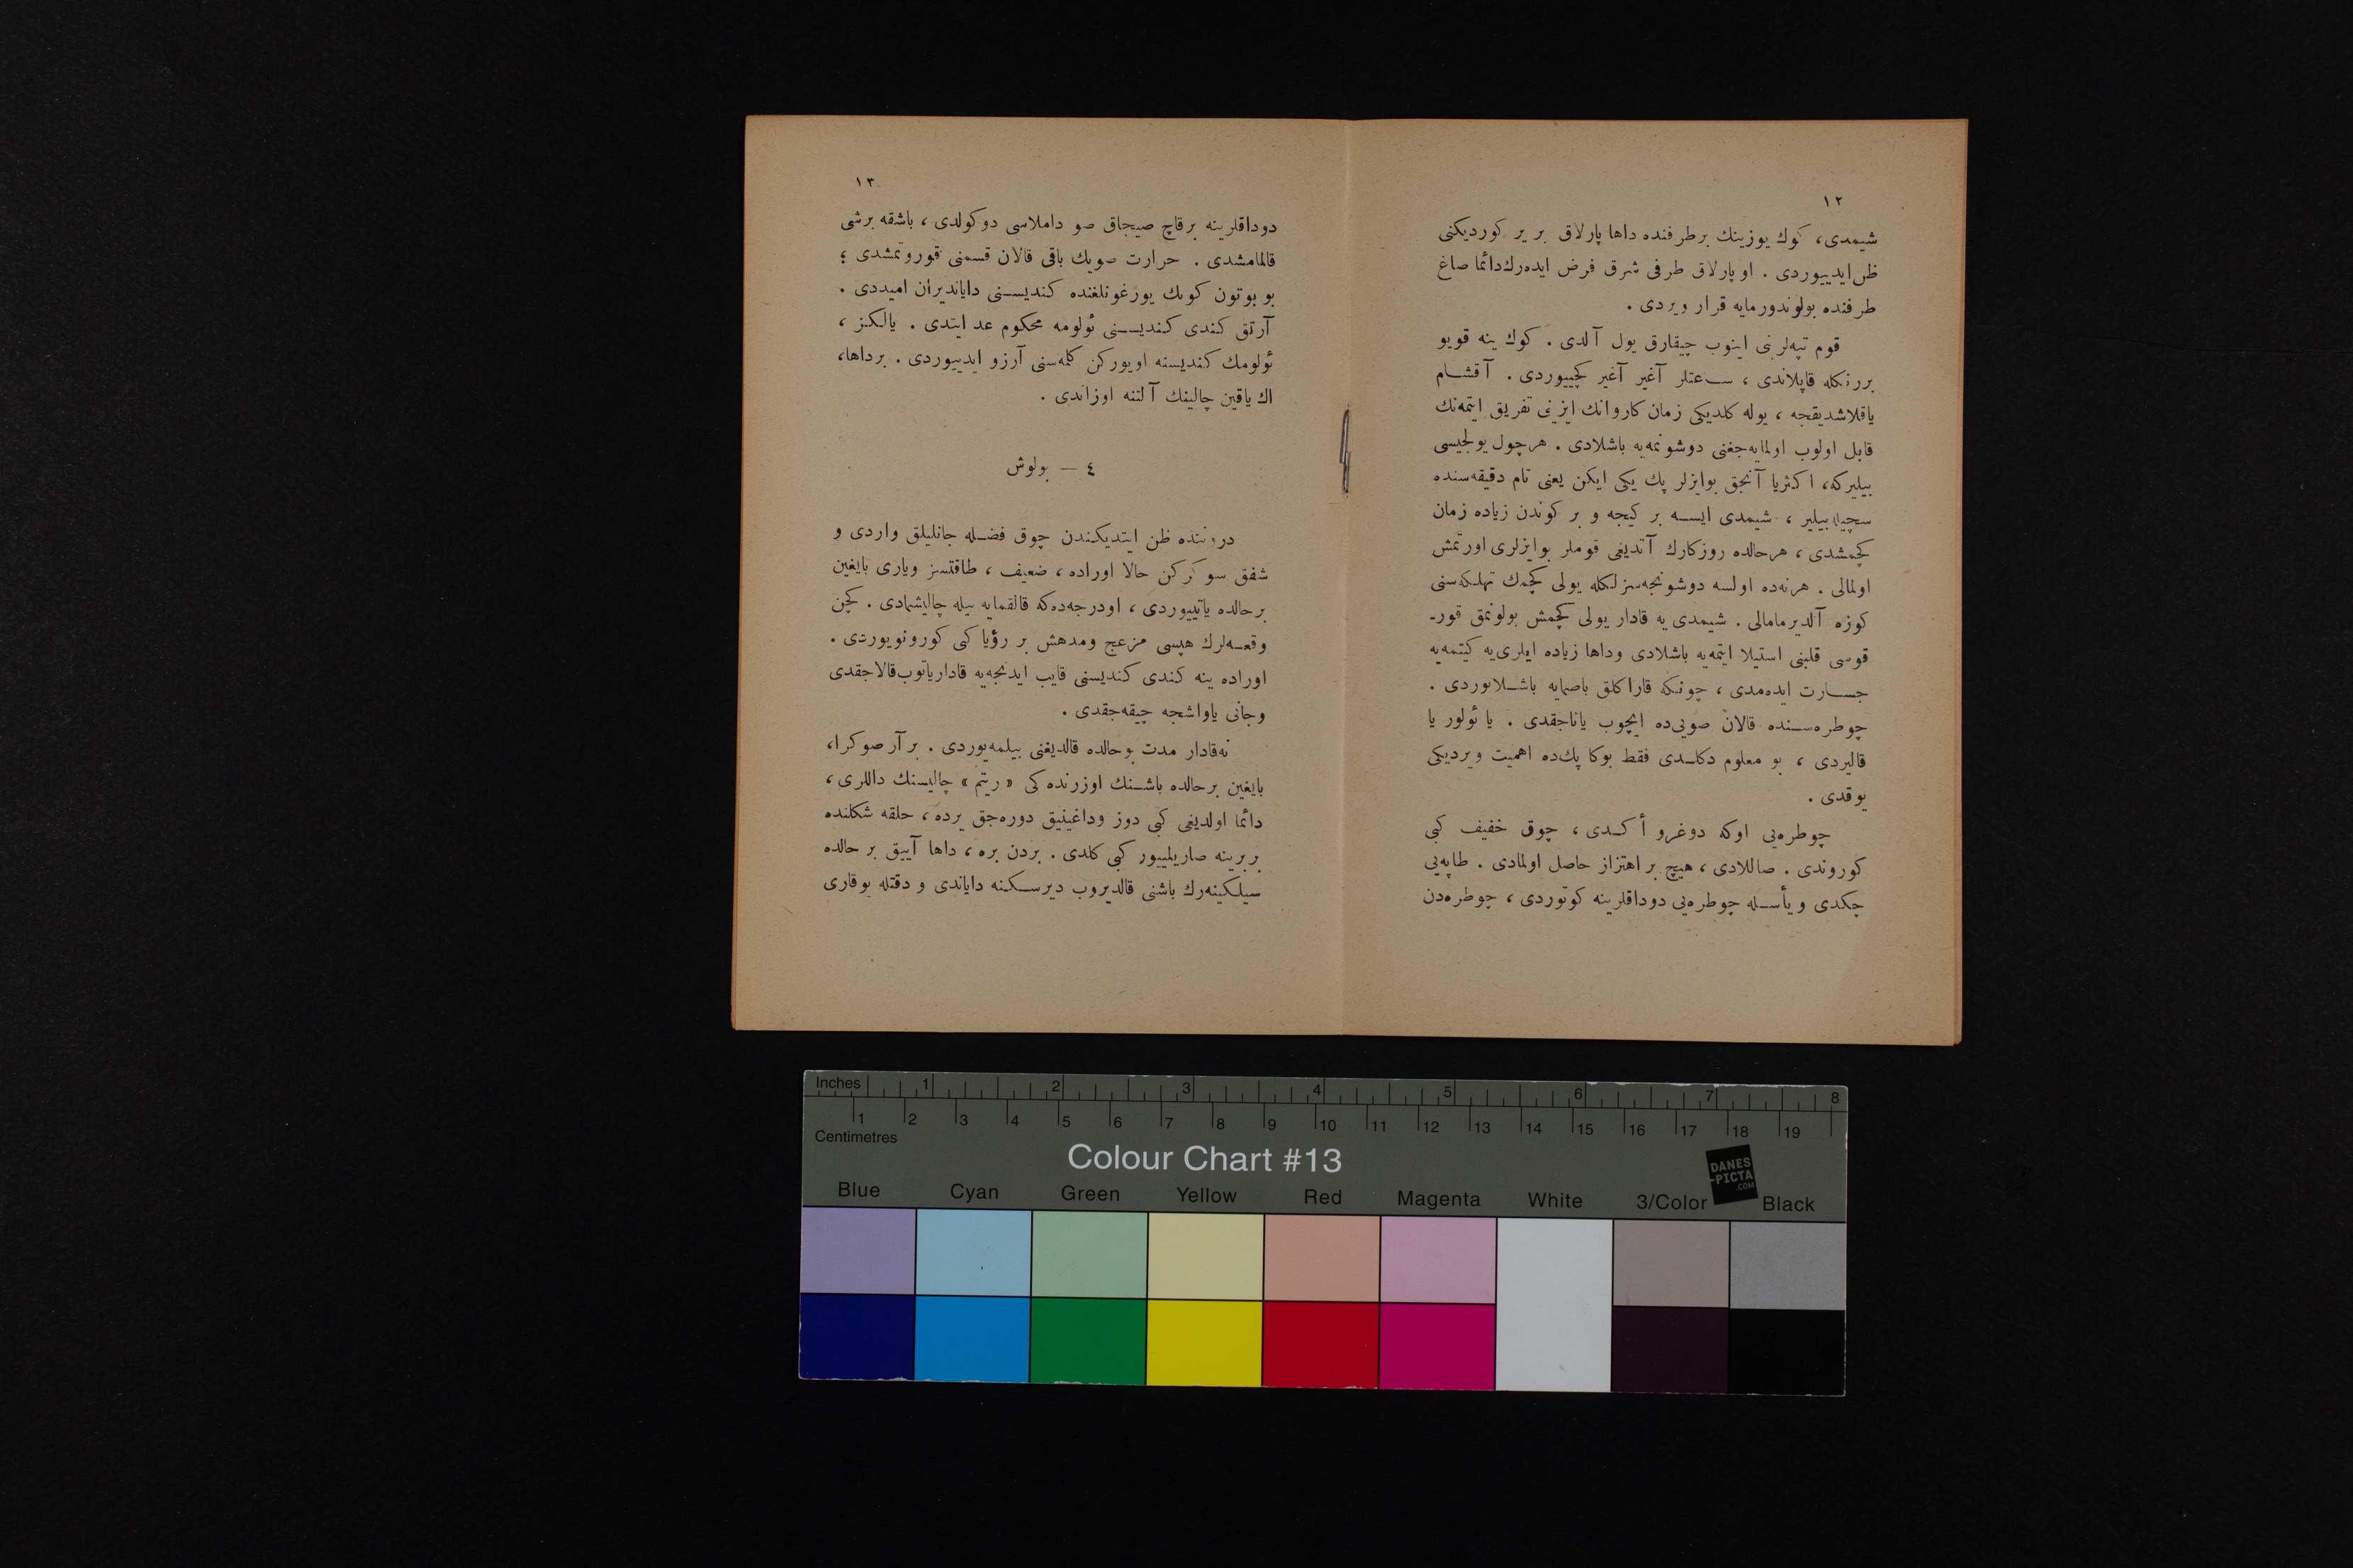 ١٢
شیمدی، کوك یوزینك برطرفنده داها پارلاق بر یر کوردیکنی
ظن‌ایدییوردی . او پارلاق طرفی شرق فرض ایده‌رك‌دائما صاغ
طرفنده بولوندورمایه قرار ویردی .
قوم تپه‌لرینی اینوب چیقارق یول آلدی . کوك ینه قویو
بررنکله قاپلاندی ، ساعتلر آغیر آغیر کچییوردی . آقشام
یاقلاشدیقجه ، یوله کلدیکی زمان کاروانك ایزینی تفریق ایتمه‌نك
قابل اولوب اولمایه‌جغنی دوشونمه‌یه باشلادی . هرچول یولجیسی
بیلیرکه، اکثریا آنجق بوایزلر پك یکی ایکن یعنی تام دقیقه‌سنده
سچیله‌بیلیر ، شیمدی ایسه بر کیجه و بر کوندن زیاده زمان
کچمشدی ، هرحالده روزکارك آتدیغی قوملر بوایزلری اورتمش
اولمالی . هرنه‌ده اولسه دوشونجه‌سزلکله یولی کچمك تهلکه‌سنی
کوزه آلدیرمامالی . شیمدی یه قادار یولی کچمش بولونمق قور-
قوسی قلبنی استیلا ایتمه‌یه باشلادی وداها زیاده ایلری‌یه کیتمه‌یه
جسارت ایده‌مدی ، چونکه قاراکلق باصمایه باشلایوردی .
چوطره‌سنده قالان صویی‌ده ایچوب یاتاجقدی . یا ئولور یا
قالیردی ، بو معلوم دکلدی فقط بوکا پك‌ده اهمیت ویردیکی
یوقدی .
چوطره‌یی اوکه دوغرو أکدی ، چوق خفیف کبی
کوروندی . صاللادی ، هیچ بر اهتزاز حاصل اولمادی . طاپه‌یی
چکدی و یأسله چوطره‌یی دوداقلرینه کوتوردی ، چوطره‌دن
١٣
دوداقلرینه برقاچ صیجاق صو داملاسی دوکولدی ، باشقه برشی
قالمامشدی . حرارت صویك باقی قالان قسمنی قوروتمشدی ؛
بو بوتون کونك یورغونلغنده کندیسنی دایاندیران امیددی .
آرتق کندی کندیسنی ئولومه محکوم عد ایتدی . یالکز ،
ئولومك کندیسنه اویورکن کلمه‌سنی آرزو ایدییوردی . برداها،
اك یاقین چالینك آلتنه اوزاندی .
٤ — بولوش
دروننده ظن ایتدیکندن چوق فضله جانلیلق واردی و
شفق سوکرکن حالا اوراده ، ضعیف ، طاقتسز ویاری بایغین
برحالده یاتییوردی ، اودرجه‌ده‌که قالقمایه بیله چالیشمادی . کچن
وقعه‌لرك هپسی مزعج ومدهش بر رؤیا کبی کورونویوردی .
اوراده ینه کندی کندیسنی قایب ایدنجه‌یه قاداریاتوب‌قالاجقدی
وجانی یاواشجه چیقه‌جقدی .
نه‌قادار مدت بوحالده قالدیغنی بیلمه‌یوردی . بر آز صوکرا،
بایغین برحالده باشنك اوزرنده‌کی « ریتم » چالیسنك داللری ،
دائما اولدیغی کبی دوز وداغینیق دوره‌جق یرده ، حلقه شکلنده
بربرینه صاریلییور کبی کلدی . بردن بره ، داها آییق بر حالده
سیلکینه‌رك باشنی قالدیروب دیرسکنه دایاندی و دقتله یوقاری
Inches 1 2 3 4 5 6 7 8
1 2 3 4 5 6 7 8 9 10 11 12 13 14 15 16 17 18 19
Centimetres
Colour Chart #13
DANES
-PICTA
.COM
Blue Cyan Green Yellow Red Magenta White 3/Color Black